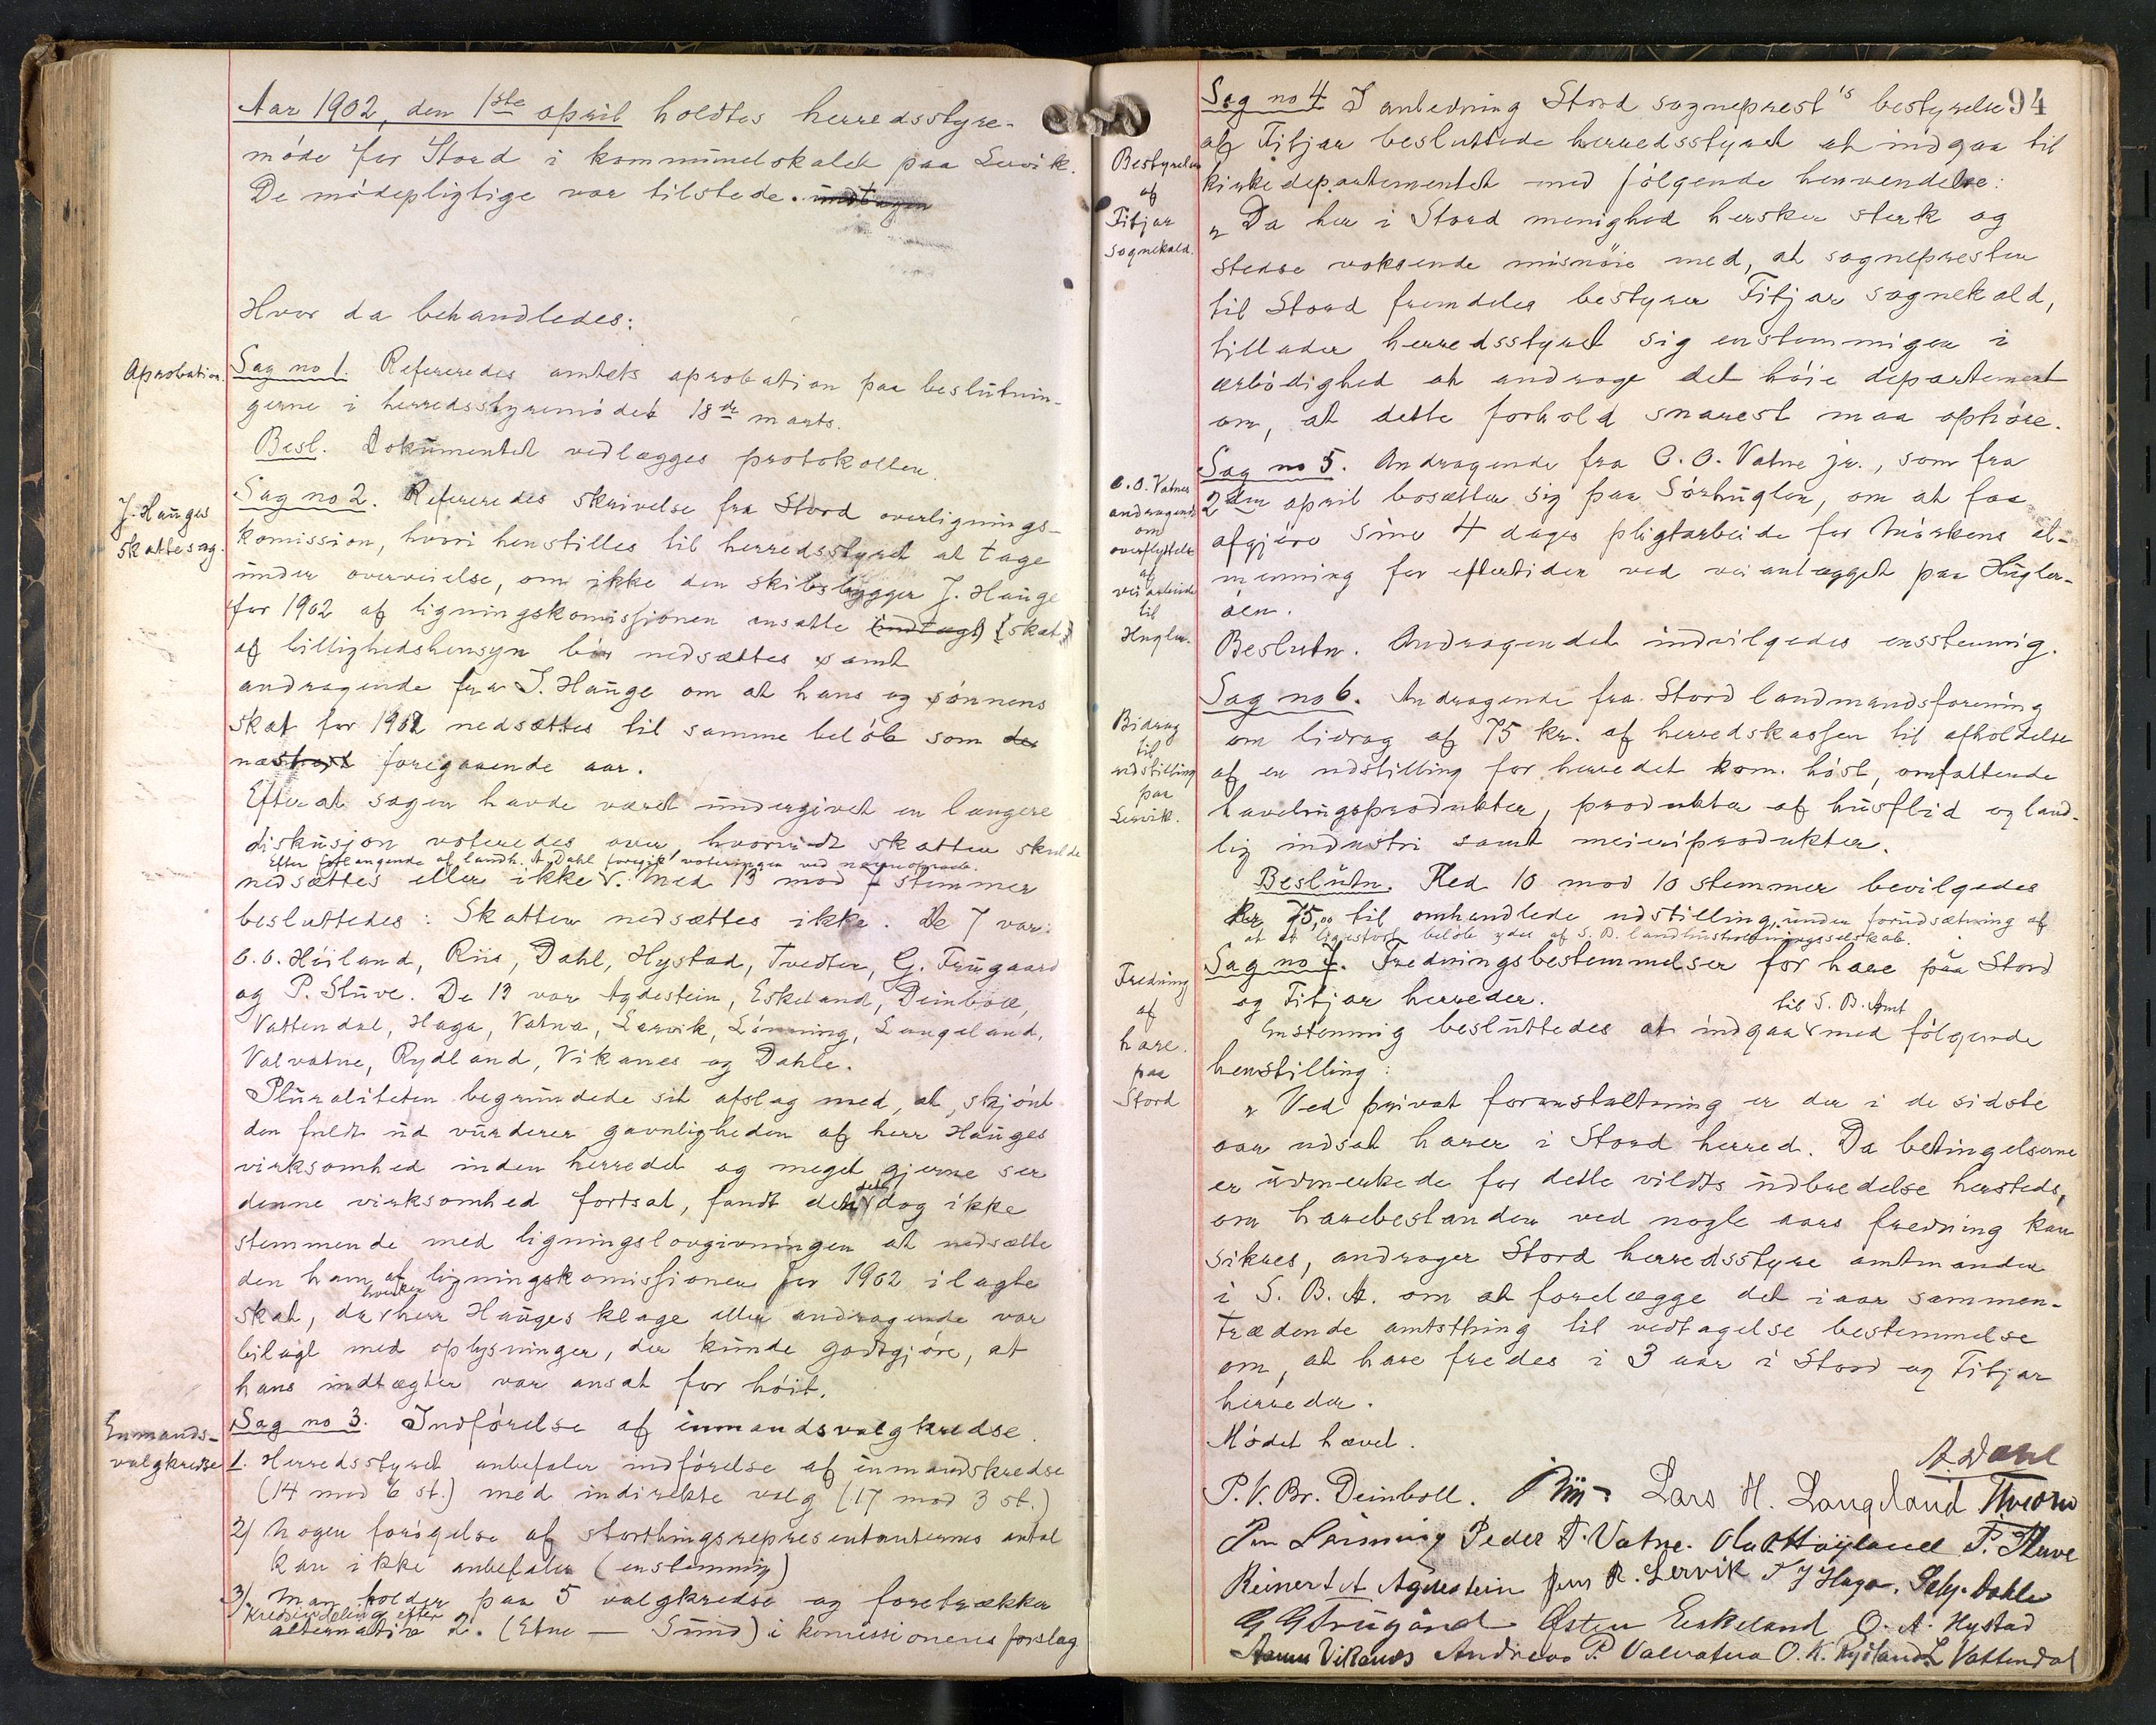 Aar 1902, den 1ste april holdtes herredsstyre-
møde for Stord i kommunelokalet paa Lervik.
De mødepligtige var tilstede. undtagen
Hvor da behandledes:
Aprobation.
Sag no 1. Refereredes amtets aprobation paa beslutnin-
gerne i herredsstyremødet 18de marts.
Besl. Dokumentet vedlægges protokollen.
J. Hauges
skattesag.
Sag no 2. Refereredes skrivelse fra Stord overlignings-
komission, hvori henstilles til herredsstyret at tage
under overveielse, om ikke den skibsbygger J. Hauge
for 1902 af ligningskomissionen ansatte (indtægt) {skat}
af billighedshensyn bør nedsættes samt
andragende fra J. Hauge om at hans og sønnens
skat for 1902 nedsættes til samme beløb som det
næstnest foregaaende aar.
Efter at sagen havde været undergivet en længere
diskusjon voteredes over, hvorvidt skatten skulde
Efter forlangende af landh. A. Dahl foregik voteringen ved navneopraab.
nedsættes eller ikke. Med 13 mod 7 stemmer
besluttedes: Skatten nedsættes ikke. De 7 var:
O. O. Høiland, Riis, Dahl, Hystad, Tvedten, G. Frugaard
og P. Stuve. De 13 var Agdestein, Eskeland, Deinboll,
Vattendal, Haga, Vatna, Lervik, Lønning, Langeland,
Valvatne, Rydland, Vikanes og Dahle.
Pluraliteten begrundede sit afslag med, at, skjønt
den fuldt ud vurderer gavnligheden af herr Hauges
virksomhed inden herredet og meget gjerne ser
denne virksomhed fortsat, fandt den det dog ikke
stemmende med ligningslovgivningen at nedsætte
den ham af ligningskomissionen for 1902 ilagte
skat, da hverken herr Hauges klage eller andragende var
bilagt med oplysninger, der kunde godtgjøre, at
hans indtægter var ansat for høit.
Enmands-
valgkredse
Sag no 3. Indførelse af enmandsvalgkredse.
1. Herredsstyret anbefaler indførelse af enmandskredse
(14 mod 6 st.) med indirekte valg (17 mod 3 st.)
2) Nogen forøgelse af storthingsrepresentanternes antal
kan ikke anbefales (enstemmig)
3). Man holder paa 5 valgkredse og foretrækker
kredsinddeling efter
alternativ 2. (Etne — Sund) i komissionens forslag
94
Bestyrelsen
af
Fitjar
sognekald.
Sag no 4 I anledning Stord sogneprest's bestyrelse
af Fitjar besluttede herredsstyret at indgaa til
kirkedepartementet med følgende henvendelse:
„Da her i Stord menighed hersker sterk og
stedse voksende misnøie med, at sognepresten
til Stord fremdeles bestyrer Fitjar sognekald,
tillader herredsstyret sig enstemmigen i
ærbødighed at andrage det høie departement
om, at dette forhold snarest maa ophøre.
O. O. Vatnes
andragende
om
overflyttelse
af
veiarbeide
til
Huglen.
Sag no 5. Andragende fra O. O. Vatne jr., som fra
2den april bosætter sig paa Sørhuglen, om at faa
afgjøre sine 4 dages pligtarbeide for Mørkens al-
menning for eftertiden ved veianlægget paa Hugler-
øen.
Beslutn. Andragendet indvilgedes enstemmig.
Bidrag
til
udstilling
paa
Lervik.
Sag no 6. Andragende fra Stord landmandsforening
om bidrag af 75 kr. af herredskassen til afholdelse
af en udstilling for herredet kom. høst, omfattende
havebrugsprodukter, produkter af husflid og land-
lig industri samt meieriprodukter.
Beslutn. Med 10 mod 10 stemmer bevilgedes
kr. 75,00 til omhandlede udstilling, under forudsætning af
at et ligestort beløb ydes af S. B. landhusholdningsselskab.
Fredning
af
hare
paa
Stord
Sag no 7. Fredningsbestemmelser for hare paa Stord
og Fitjar herreder.
til S. B. Amt
Enstemmig besluttedes at indgaa med følgende
henstilling:
„Ved privat foranstaltning er der i de sidste
aar udsat harer i Stord herred. Da betingelserne
er udmerkede for dette vildts udbredelse hersteds,
om harebestanden ved nogle aars fredning kan
sikres, andrager Stord herredsstyre amtmanden
i S. B. A. om at forelægge det iaar sammen-
trædende amtsthing til vedtagelse bestemmelse
om, at hare fredes i 3 aar i Stord og Fitjar
herreder.
Mødet hævet.
A. Dahl
P. V. Br. Deinboll. Riis Lars H. Langeland
Lønning Peder T. Vatne. Ola O Høyland P. Stuve
Reinert A. Agdestein Jens R. Lervik T J Haga. Dahle
G G Frugård Østen Eskeland O. A. Hystad
Vikanes Andreas P. Valvatna O. K. Rydland L Vattendal